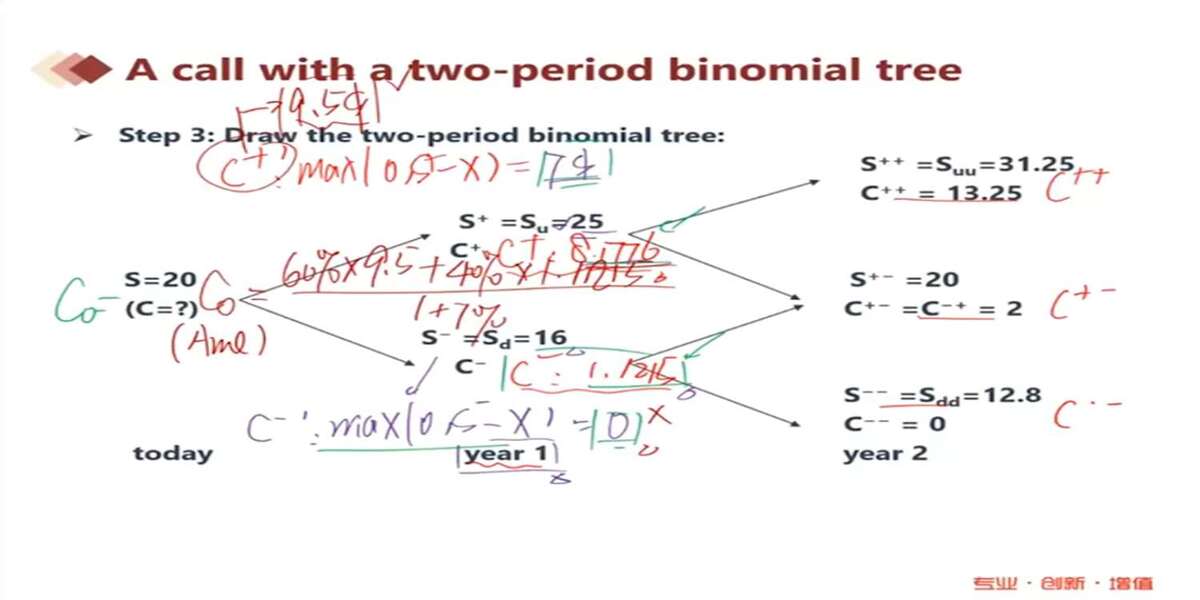 A call with a two-period binomial tree
9.5$
➢ Step 3: Draw the two-period binomial tree:
C⁺: max(0, S-X) = 7$
S⁺⁺ =Suu=31.25
C⁺⁺ = 13.25 C⁺⁺
S⁺ =Su=25
C⁺
60%×9.5+40%×1.1215
1+7%
S=20
(C=?)
C₀ = 
(Ame)
S⁺⁻ =20
C⁺⁻ =C⁻⁺ = 2 C⁺⁻
S⁻ =Sd=16
C⁻ C⁻: 1.1215
S⁻⁻ =Sdd=12.8
C⁻⁻ = 0 C⁻⁻
C⁻: max(0, S-X) = 0 x
today year 1 year 2
专业·创新·增值